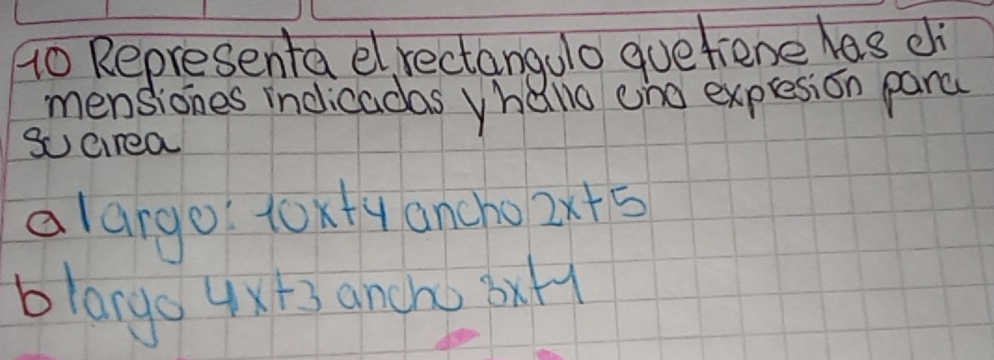 10 Representa el rectangulo que tiene las di
mensiones indicadas y halla una expresión para
su area
a largo: 10x+4 ancho 2x+5
b largo 4x+3 ancho 3x+1